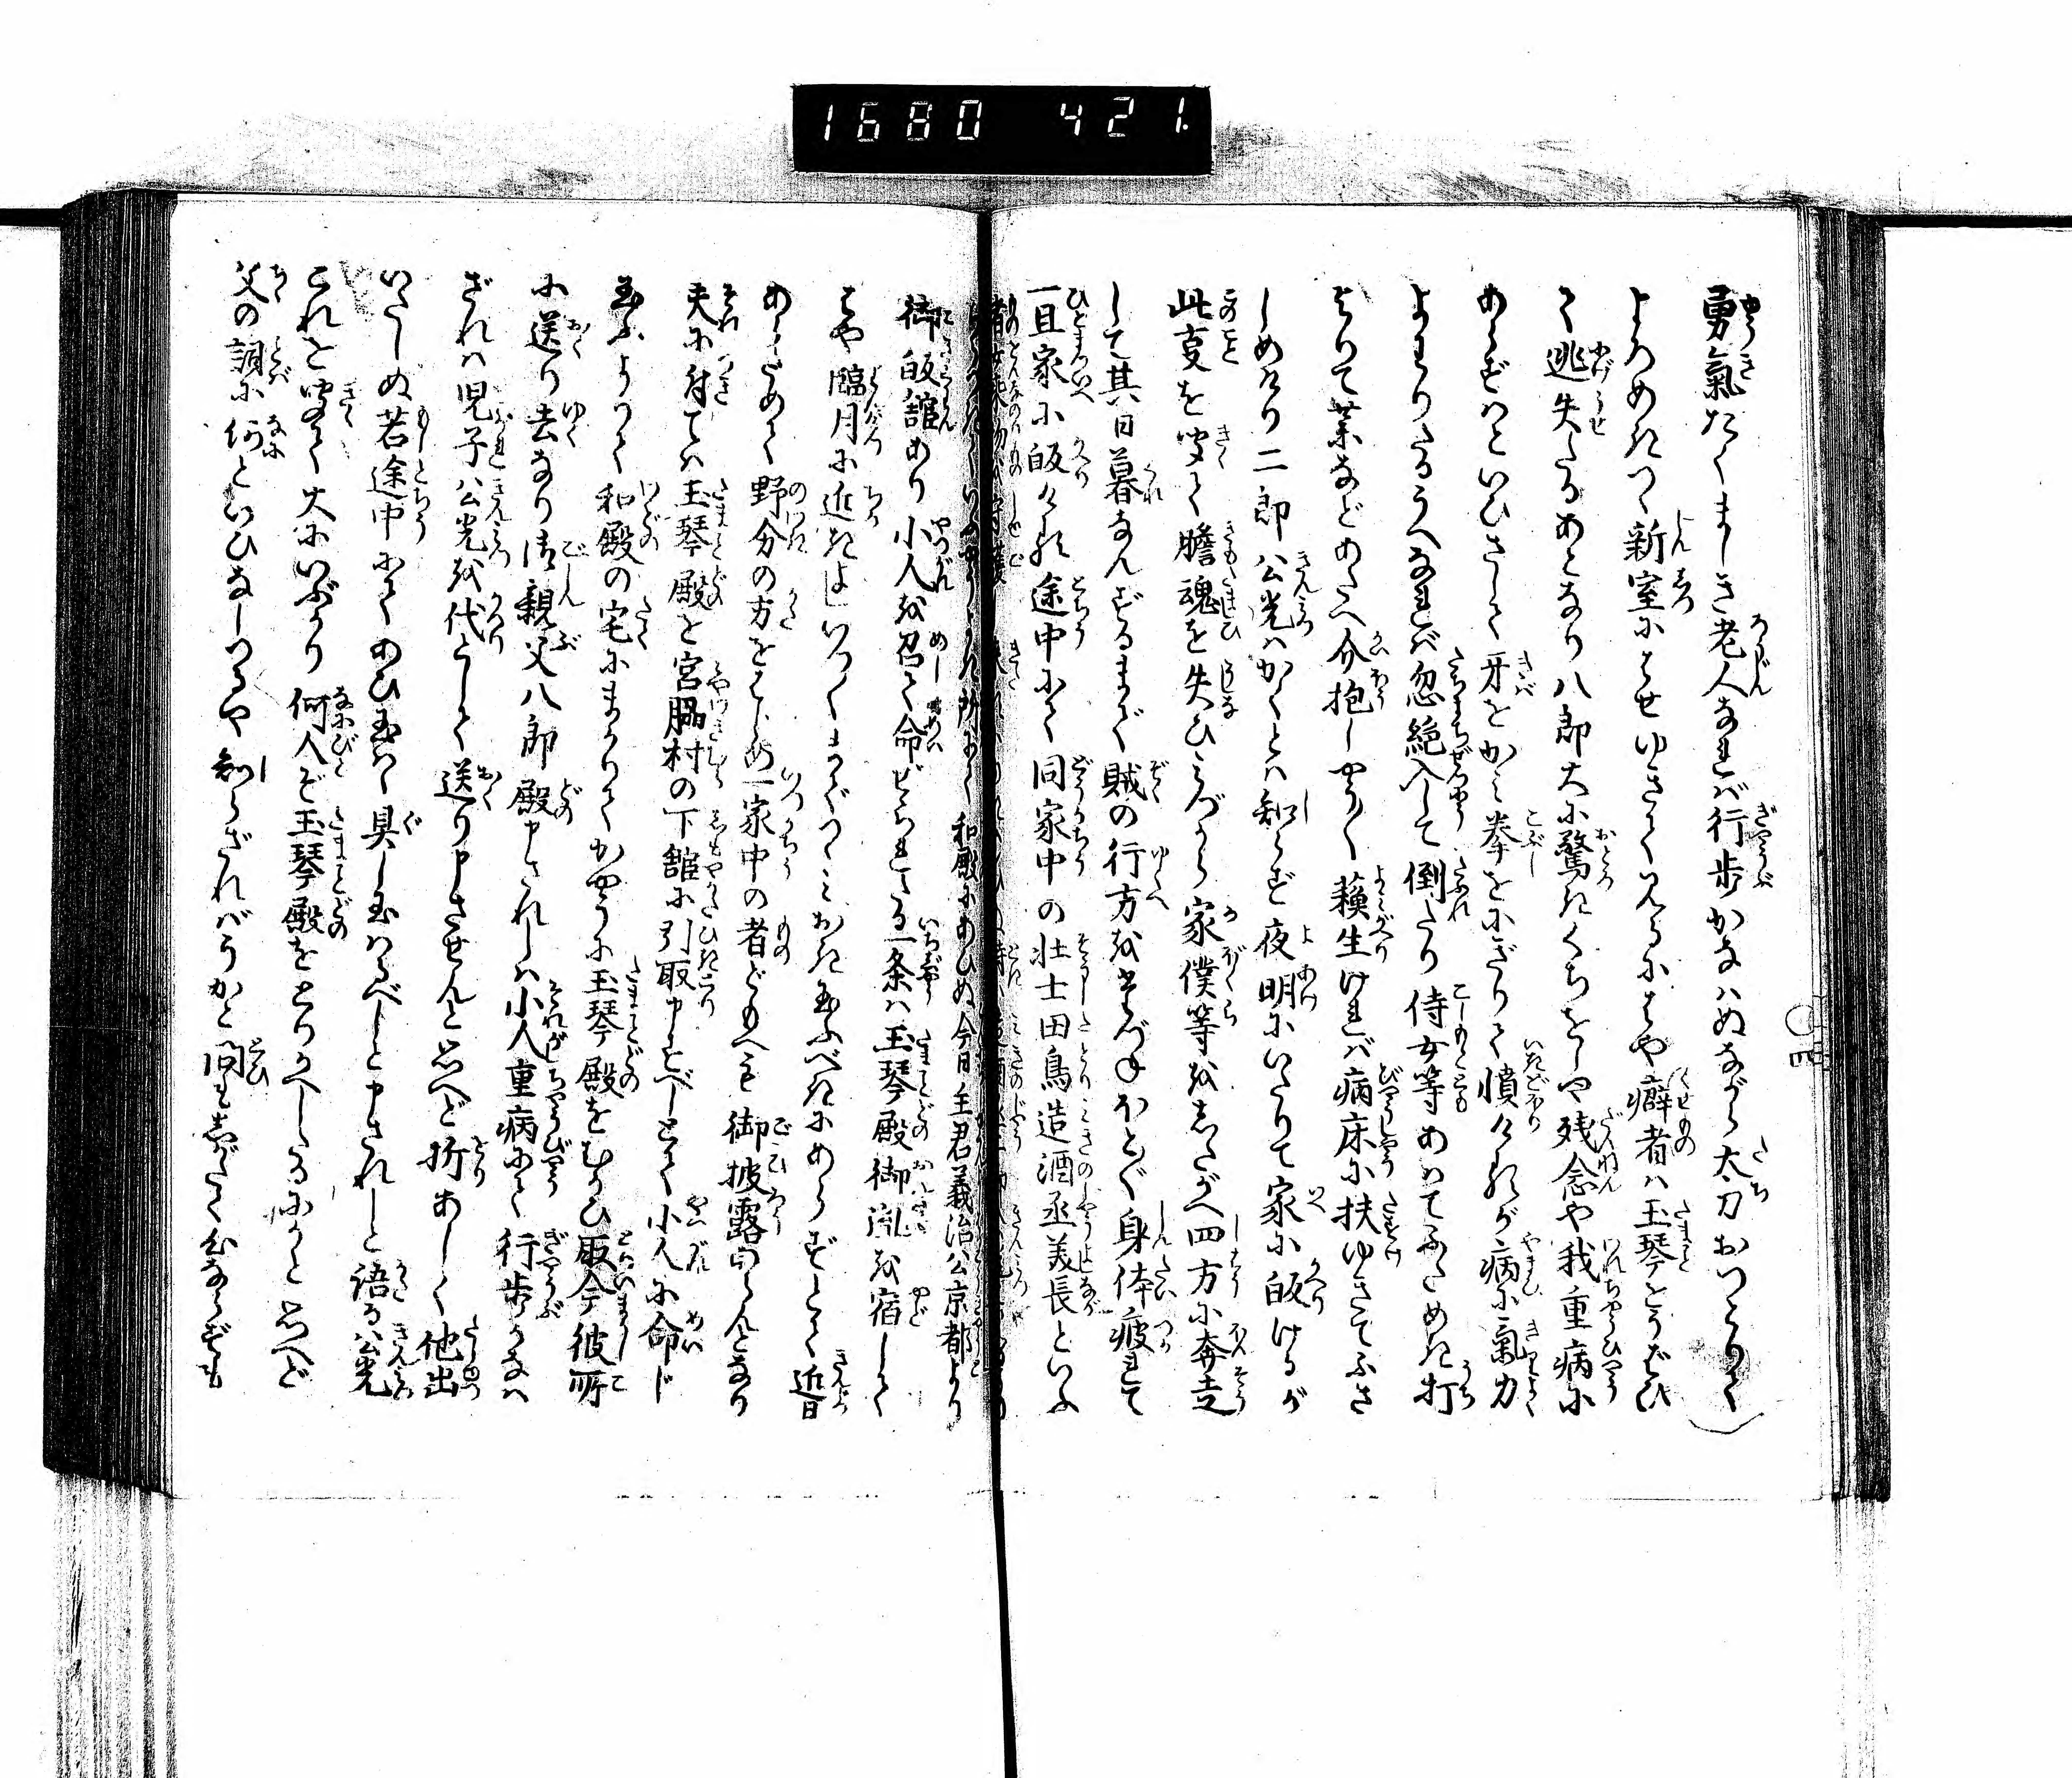 1680 421.
勇氣たくましき老人なれば行歩かなはぬながら太刀おつとりて
よろめきつゝ新室にはせゆきて見るにはや癖者は玉琴をうばひ
て逃失たるあとなり八郎大に驚きくちをしや残念や我重病に
あらずはといひさして牙をかみ拳をにぎりて憤けるが病に氣力
よわりたるうへなれば忽絶入して倒たり侍女等あはてふためき打
よりて薬などあたへ介抱しやうやく蘓生ければ病床に扶ゆきてふさ
しめけり二郎公光はかくとは知らず夜明にいたりて家に皈けるが
此叓を聞て膽魂を失ひみづから家僕等をしたがへ四方に奔走
して其日暮なんずるまで賊の行方をたづねけれども身体疲れて
一且家に皈ける途中にて同家中の壮士田鳥造酒丞美長といふ
和殿にあひぬ今日主君義治公京都より
御皈舘あり小人を召て命ぜられたる一条は玉琴殿御胤を宿して
はや臨月に近きよしいつまでつゝみおき玉ふべきにあらずとて近日
あらためて野分の方をはじめ一家中の者どもへも御披露あらんとなり
夫に付ては玉琴殿を宮脇村の下舘に引取申すべしとて小人に命じ
玉ふよりて和殿の宅にまかりてかやうに玉琴殿をむかひ取今彼所
に送り去なり御親父八郎殿申されしは小人重病にて行歩かなは
ざれは児子公光を代として送り申させんと思へど折あしく他出
いたしぬ若途中にてあひ玉はゞ具し玉はるべしと申されしと語る公光
これを聞て大にいぶかり何人ぞ玉琴殿をとりかへしたるにかと思へど
父の詞に何といひなしつるや知らざればうかと問もしがたく心ならずも